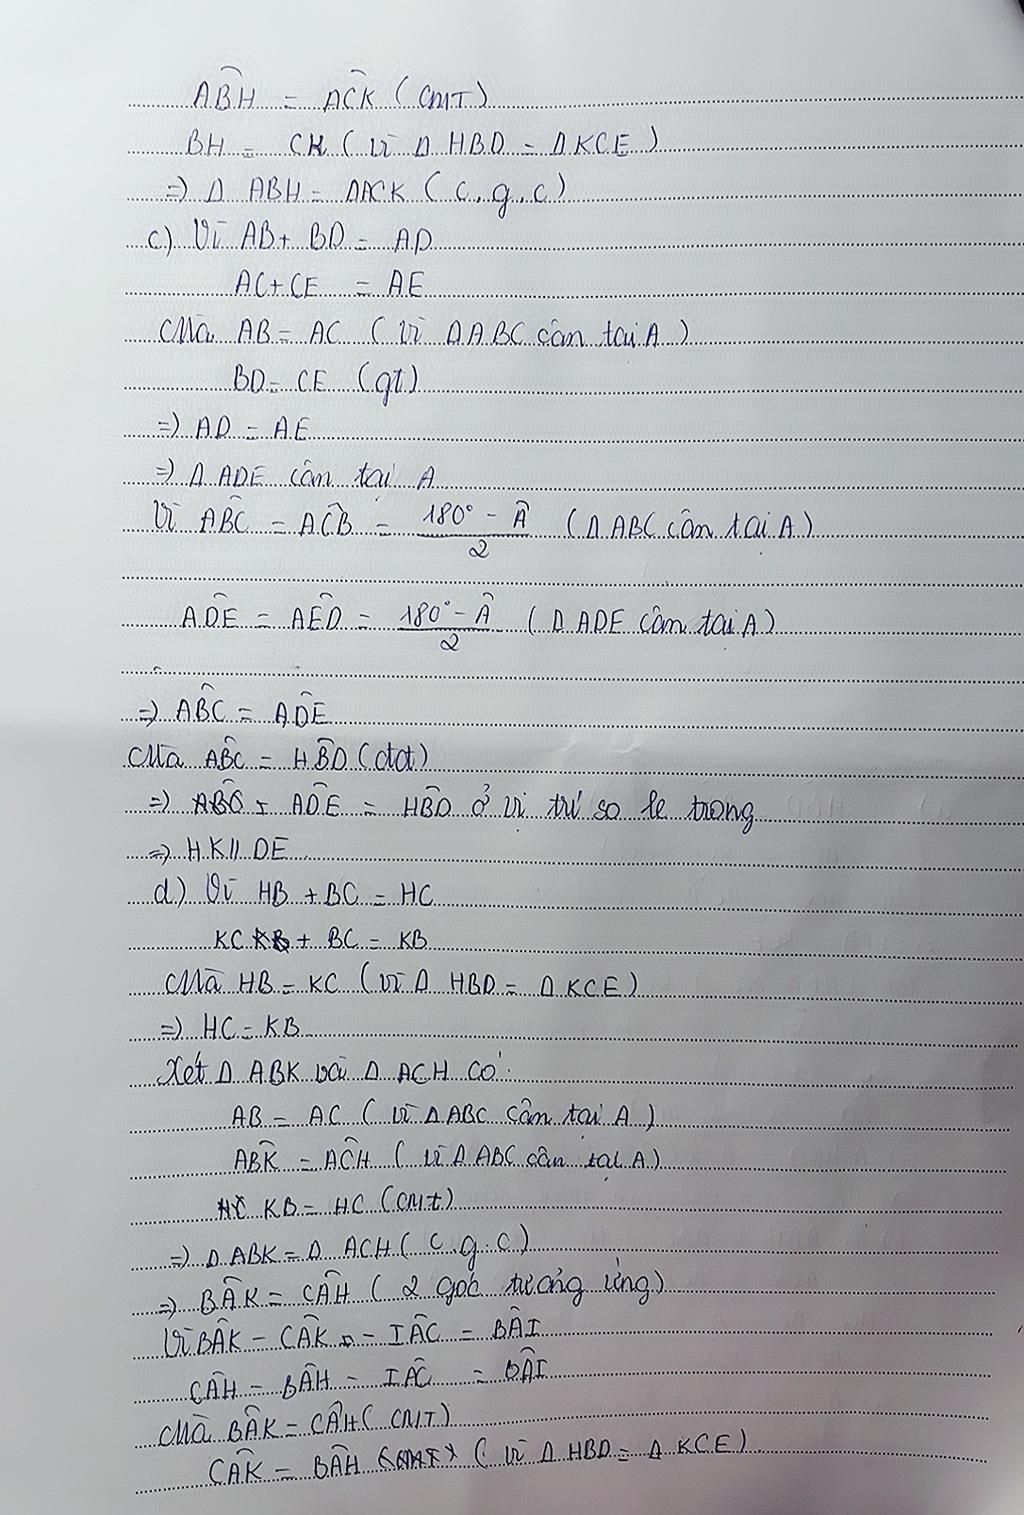 ABH = ACK (CMT)
BH = CK (vì Δ HBD = Δ KCE)
=) Δ ABH = ΔACK (c.g.c)
c) Vì AB + BD = AD
AC + CE = AE
Mà AB = AC (vì ΔABC cân tại A)
BD = CE (gt)
=) AD = AE
=) Δ ADE cân tại A
Vì ABC = ACB = (180° - Â)/2 (Δ ABC cân tại A)
ADE = AED = (180° - Â)/2 (Δ ADE cân tại A)
=) ABC = ADE
Mà ABC = HBD (đđ)
=) ADE = HBD ở vị trí so le trong
=) HK // DE
d) Vì HB + BC = HC
KC + BC = KB
Mà HB = KC (vì Δ HBD = Δ KCE)
=) HC = KB
Xét Δ ABK và Δ ACH có:
AB = AC (vì Δ ABC cân tại A)
ABK = ACH (vì Δ ABC cân tại A)
KB = HC (cmt)
=) Δ ABK = Δ ACH (c.g.c)
=) BAK = CAH (2 góc tương ứng)
Vì BAK - CAK - IAC = BAI
CAH - BAH - IAC = BAI
Mà BAK = CAH (CMT)
CAK = BAH (vì Δ HBD = Δ KCE)